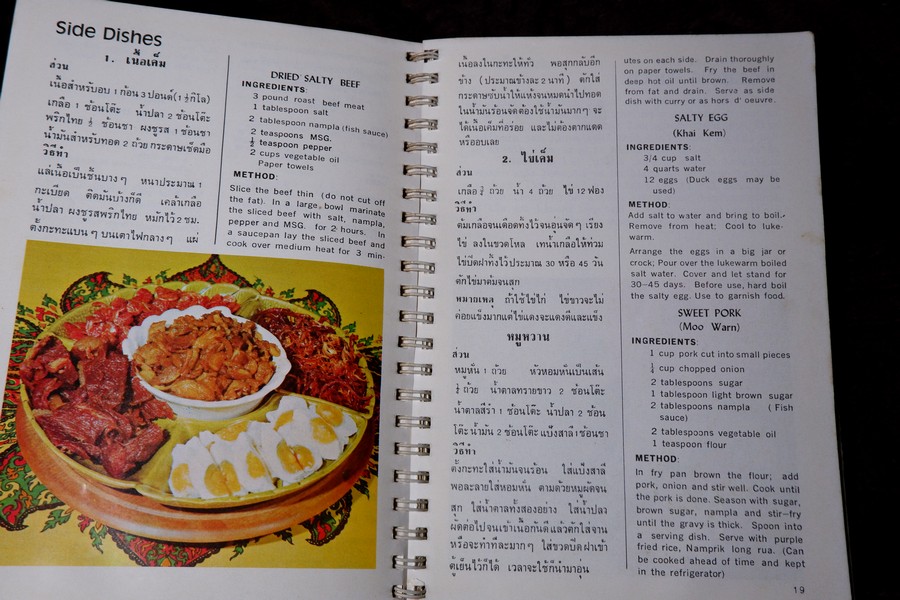 Side Dishes
1. เนื้อเค็ม
ส่วน
เนื้อสำหรับอบ 1 ก้อน 3 ปอนด์ (1 ½ กิโล)
เกลือ 1 ช้อนโต๊ะ น้ำปลา 2 ช้อนโต๊ะ
พริกไทย ½ ช้อนชา ผงชูรส 1 ช้อนชา
น้ำมันสำหรับทอด 2 ถ้วย กระดาษเช็ดมือ
วิธีทำ
แล่เนื้อเป็นชิ้นบาง ๆ หนาประมาณ 1
กะเบียด ติดมันบ้างก็ดี เคล้าเกลือ
น้ำปลา ผงชูรสพริกไทย หมักไว้ 2 ชม.
ตั้งกะทะแบน ๆ บนเตาไฟกลาง ๆ แผ่
DRIED SALTY BEEF
INGREDIENTS:
3 pound roast beef meat
1 tablespoon salt
2 tablespoon nampla (fish sauce)
2 teaspoons MSG.
½ teaspoon pepper
2 cups vegetable oil
Paper towels
METHOD:
Slice the beef thin (do not cut off
the fat). In a large bowl marinate
the sliced beef with salt, nampla,
pepper and MSG. for 2 hours. In
a saucepan lay the sliced beef and
cook over medium heat for 3 min-
เนื้อลงในกะทะให้ทั่ว พอสุกกลับอีก
ข้าง (ประมาณข้างละ 2 นาที) ตักใส่
กระดาษซับน้ำให้แห้งจนหมดนำไปทอด
ในน้ำมันร้อนจัดต้องใช้น้ำมันมาก ๆ จะ
ได้เนื้อเค็มที่อร่อย และไม่ต้องตากแดด
หรืออบเลย
2. ไข่เค็ม
ส่วน
เกลือ ¾ ถ้วย น้ำ 4 ถ้วย ไข่ 12 ฟอง
วิธีทำ
ต้มเกลือจนเดือดทิ้งไว้จนอุ่นจัด ๆ เรียง
ไข่ ลงในขวดโหล เทน้ำเกลือให้ท่วม
ไข่ปิดฝาทิ้งไว้ประมาณ 30 หรือ 45 วัน
ตักไข่มาต้มจนสุก
หมายเหตุ ถ้าใช้ไข่ไก่ ไข่ขาวจะไม่
ค่อยแข็งมากแต่ไข่แดงจะแดงดีและแข็ง
หมูหวาน
ส่วน
หมูหั่น 1 ถ้วย หัวหอมหั่นเป็นเส้น
½ ถ้วย น้ำตาลทรายขาว 2 ช้อนโต๊ะ
น้ำตาลสีรำ 1 ช้อนโต๊ะ น้ำปลา 2 ช้อน
โต๊ะ น้ำมัน 2 ช้อนโต๊ะ แป้งสาลี 1 ช้อนชา
วิธีทำ
ตั้งกะทะใส่น้ำมันจนร้อน ใส่แป้งสาลี
พอละลายใส่หอมหั่น ตามด้วยหมูผัดจน
สุก ใส่น้ำตาลทั้งสองอย่าง ใส่น้ำปลา
ผัดต่อไปจนเข้าเนื้อกันดีแล้วตักใส่จาน
หรือจะทำทีละมาก ๆ ใส่ขวดปิดฝาเข้า
ตู้เย็นไว้ก็ได้ เวลาจะใช้ก็นำมาอุ่น
utes on each side. Drain thoroughly
on paper towels. Fry the beef in
deep hot oil until brown. Remove
from fat and drain. Serve as side
dish with curry or as hors d' oeuvre.
SALTY EGG
(Khai Kem)
INGREDIENTS:
3/4 cup salt
4 quarts water
12 eggs (Duck eggs may be
used)
METHOD:
Add salt to water and bring to boil.
Remove from heat: Cool to luke-
warm.
Arrange the eggs in a big jar or
crock; Pour over the lukewarm boiled
salt water. Cover and let stand for
30-45 days. Before use, hard boil
the salty egg. Use to garnish food.
SWEET PORK
(Moo Warn)
INGREDIENTS:
1 cup pork cut into small pieces
¼ cup chopped onion
2 tablespoons sugar
1 tablespoon light brown sugar
2 tablespoons nampla (Fish
sauce)
2 tablespoons vegetable oil
1 teaspoon flour
METHOD:
In fry pan brown the flour; add
pork, onion and stir well. Cook until
the pork is done. Season with sugar,
brown sugar, nampla and stir-fry
until the gravy is thick. Spoon into
a serving dish. Serve with purple
fried rice, Namprik long rua. (Can
be cooked ahead of time and kept
in the refrigerator)
19